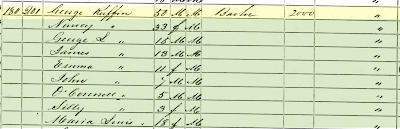 180 201 George Ruffin 50 M M 2000 "
Nancy " 33 f M "
George L " 15 M M "
James " 13 M M "
Emma " 11 f M "
John " 7 M M "
O'Connell " 5 M M "
Silly " 3 f M "
Maria Lewis " 18 f M "